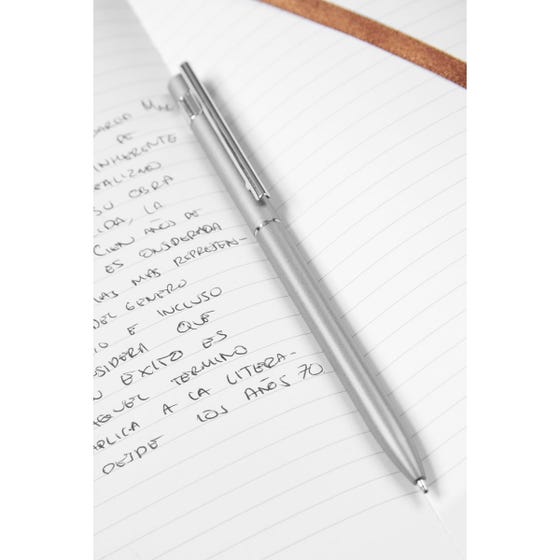 DE
INHERENTE
REALIZMO
SU OBRA
LA
CIEN AÑOS DE
ES ONSIDERADA
LAS MAS REPRESEN-
DEL GENERO
TO E INCLUSO
SIDERA QUE
ÉXITO ES
AQUEL TERMINO
APLICA A LA LITERA-
DESDE LOS AÑOS 70